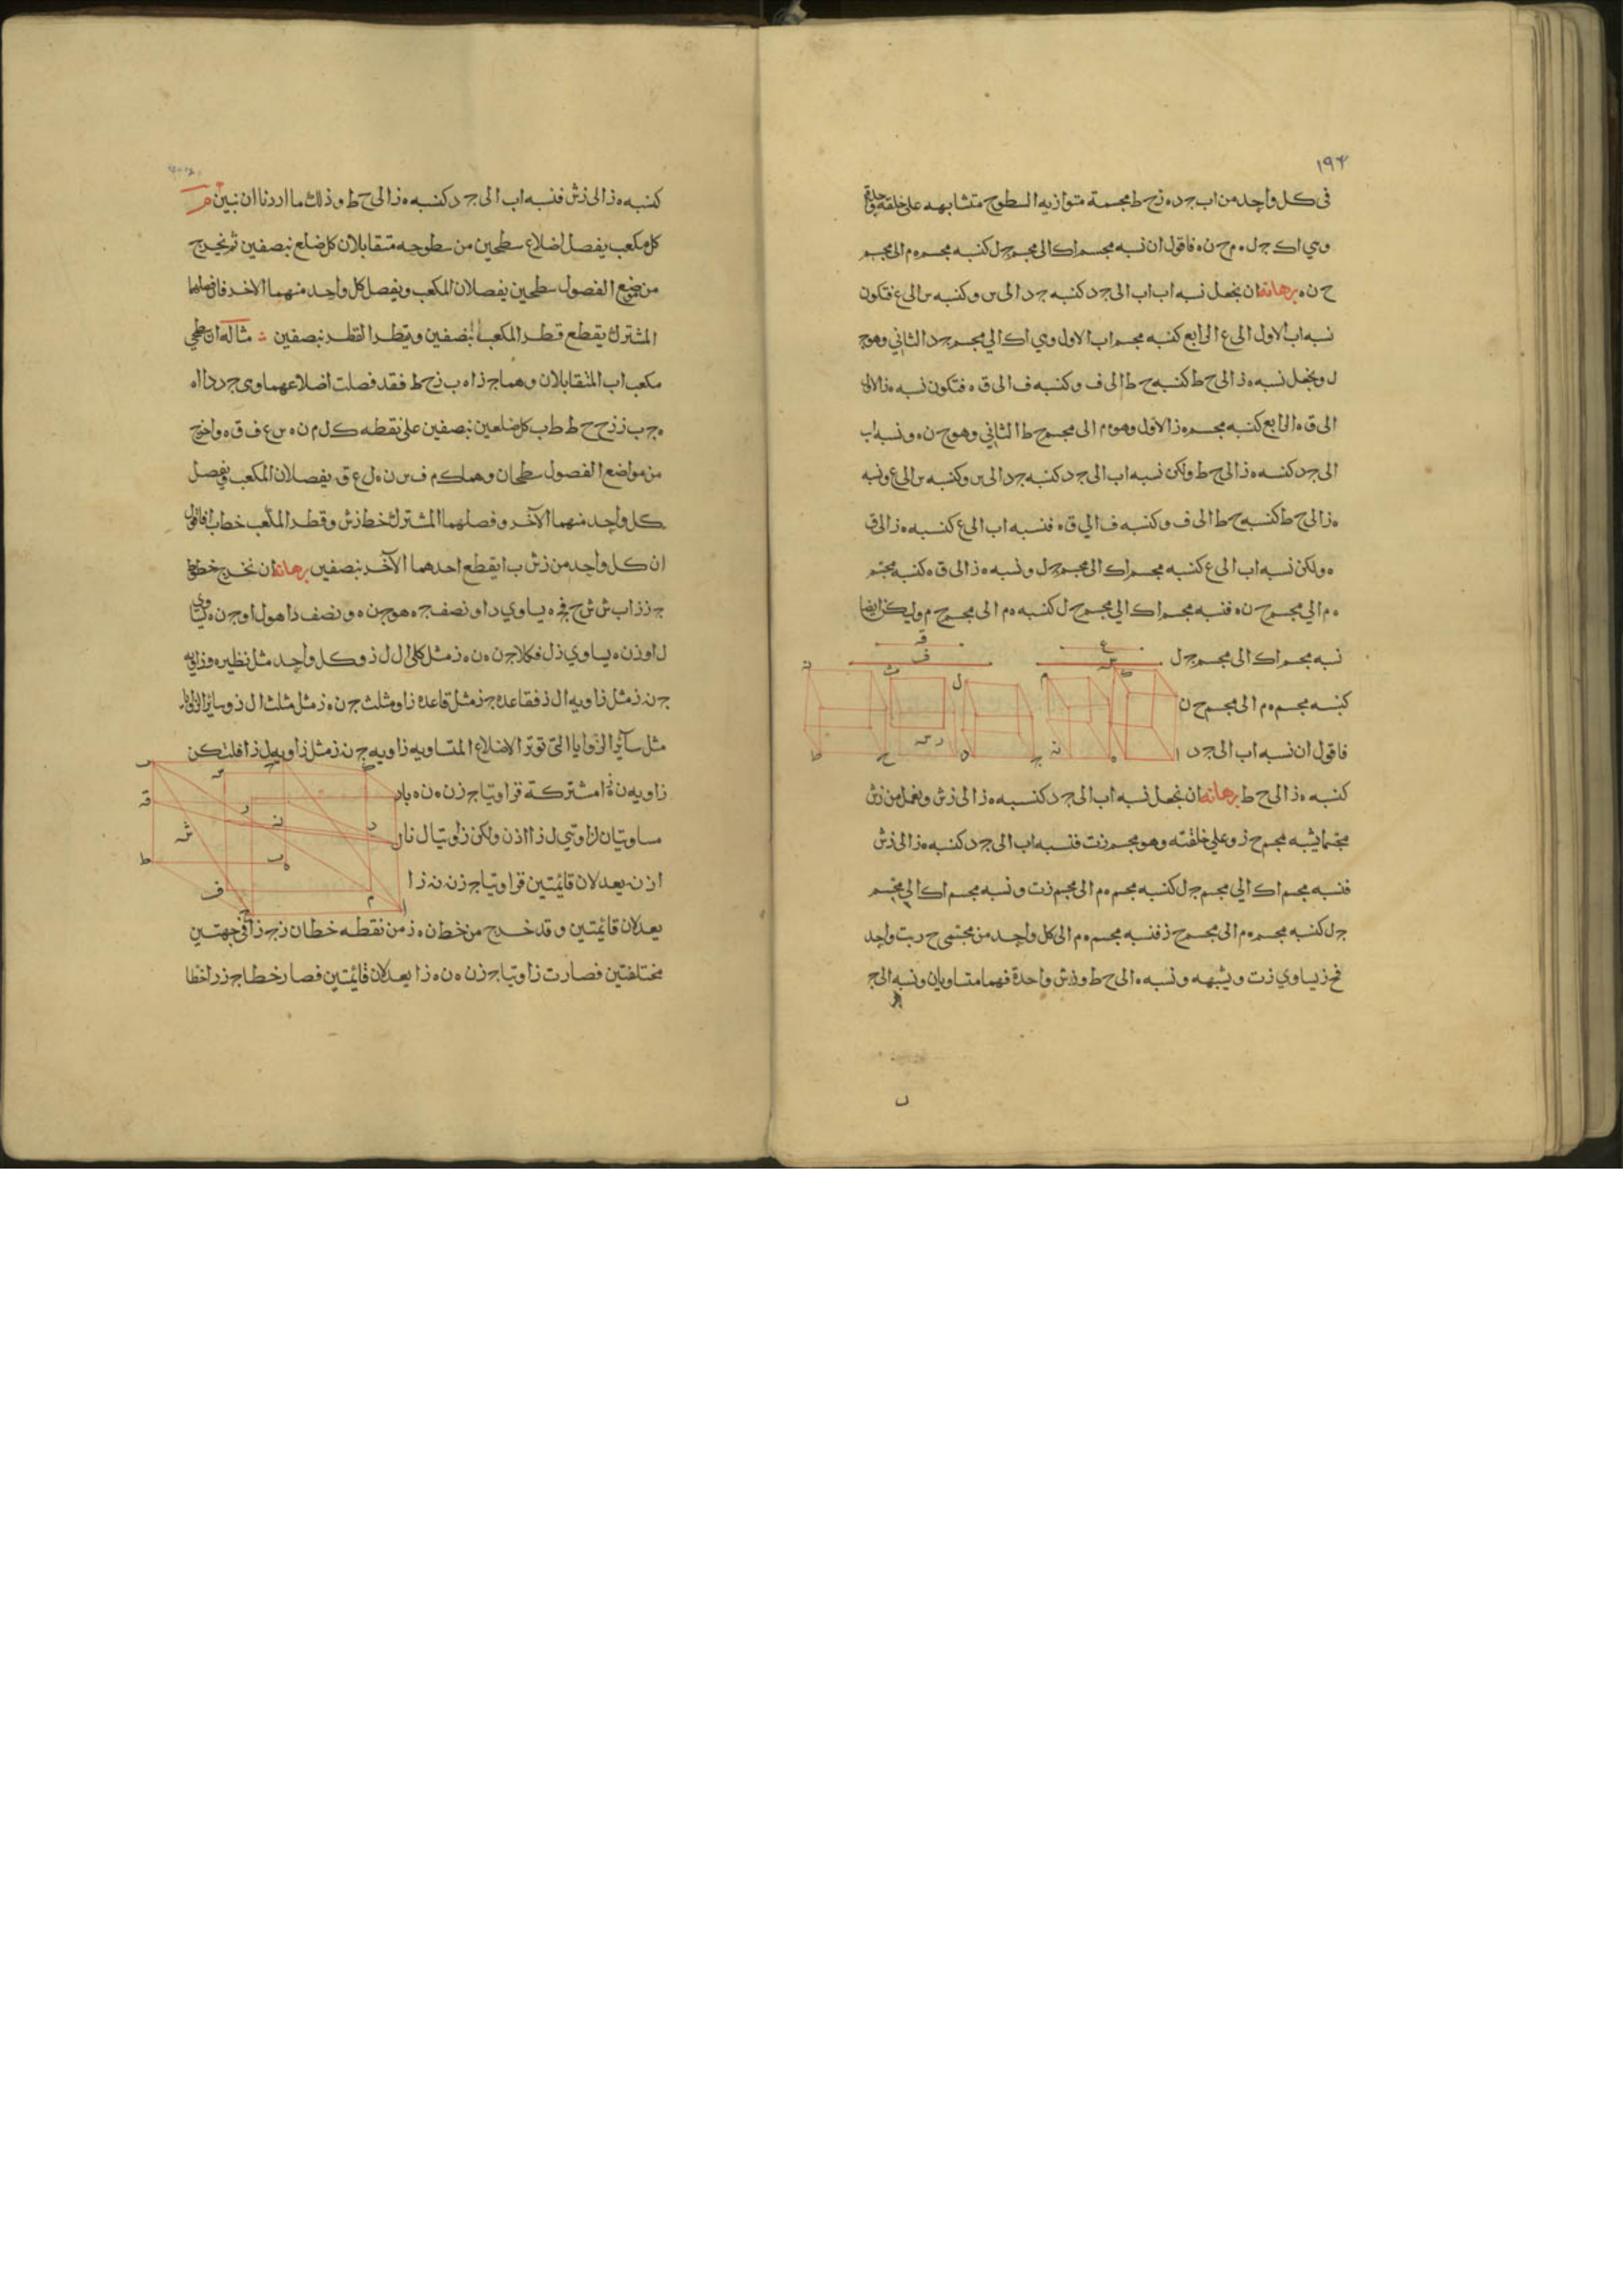 ١٩٤
فى كل واحد من اب جد ه ز ح ط مجسمة متوازيه السطوح متشابهه على خلقه واحدة
وهي اك جل ه م ح ن ه فاقول ان نسبه مجسم اك الى مجسم جل كنسبه مجسم ه م الى مجسم
ح ن ه برهانه ان نجعل نسبه اب الى جد كنسبه جد الى س وكنسبه س الى ع فتكون
نسبه اب الاول الى ع الرابع كنسبه مجسم اب الاول وهي اك الي مجسم جد الثاني وهو ج
ل ونجعل نسبه ه ز الى ح ط كنسبه ح ط الى ف وكنسبه ف الى ق ه فتكون نسبه ه ز الاول
الى ق ه الرابع كنسبه مجسم ه ز الاول وهو ه م الى مجسم ح ط الثاني وهو ح ن ه ونسبه اب
الى جد كنسبه ه ز الى ح ط ولكن نسبه اب الى جد كنسبه جد الى س وكنسبه س الى ع ونسبه
ه ز الى ح ط كنسبه ح ط الى ف وكنسبه ف الي ق ه فنسبه اب الى ع كنسبه ه ز الى ق
ه ولكن نسبه اب الى ع كنسبه مجسم اك الى مجسم جل ونسبه ه ز الى ق ه كنسبه مجسم
ه م الي مجسم ح ن ه فنسبه مجسم اك الي مجسم ج ل كنسبه ه م الى مجسم ح م وليكن ايضا
نسبه مجسم اك الى مجسم ج ل
كنسبه مجسم ه م الى مجسم ح ن
فاقول ان نسبه اب الى جد
كنسبه ه ز الى ح ط برهانه ان نجعل نسبه اب الى جد كنسبه ه ز الى ز ش ونعمل من ز ش
مجسما يشبه مجسم ح ز وعلي خلقته وهو مجسم ز ت فنسبه اب الى جد كنسبه ه ز الى ز ش
فنسبه مجسم اك الي مجسم ج ل كنسبه مجسم ه م الى مجسم ز ت ونسبه مجسم اك الي مجسم
ج ل كنسبه مجسم ه م الى مجسم ح ز فنسبه مجسم ه م الى كل واحد من مجسمى ح ز ز ت واحد
فح ز يساوي ز ت ويشبهه ونسبه ه الى ح ط و ز ش واحدة فهما متساويان ونسبه الى ج
كنسبه ه ز الى ز ش فنسبه اب الى جد كنسبه ه ز الى ح ط وذلك ما اردنا ان نبين
كل مكعب يفصل اضلاع سطحين من سطوحه متقابلان كل ضلع نبصفين ثم يخرج
من مواضع الفصول سطحين يفصلان المكعب ويفصل كل واحد منهما الاخر فان فصلهما
المشترك يقطع قطر المكعب بنصفين ويقطر القطر نبصفين مثاله ان سطحي
مكعب اب المتقابلان وهما ج ز ا ه ب ز ح ط فقد فصلت اضلاعهما وهي ج د د ا ا ه
ه ج ب ز ز ح ح ط ط ب كل ضلعين نبصفين على نقطه ك ل م ن ه س ع ف ق ه واخرج
من مواضع الفصول سطحان وهما ك م ف س ن ه ل ع ق يفصلان المكعب ويفصل
كل واحد منهما الآخر وفصلهما المشترك خط ز ش وقطر المكعب خط اب فاقول
ان كل واحد من ز ش ب ا يقطع احدهما الآخر نبصفين برهانه ان نخرج خطوط
ج ز ز ا ب ش ش ح فج ه يساوي د ا ونصف ج ه هو ج ن ه ونصف د ا هو ل ا و ج ن ه يساوي
ل ا و ز ن ه يساوي ز ل فكلا ج ن ه ن ه ز مثل كلى ا ل ل ز وكل واحد مثل نظيره وزاويه
ج ن ز مثل زاويه ا ل ز فقاعده ج ز مثل قاعده ز ا ومثلث ج ن ه ز مثل مثلث ا ل ز وسائر الزوايا
مثل سائر الزوايا التى توتر الاضلاع المتساويه زاويه ج ن ز مثل زاويه ل ز ا فلتكن
زاويه ن ز ا مشتركة فزاويتا ج ز ن ه ن ه
مساويتان لزاويتي ل ز ا ا ز ن ولكن زاويتا ل ز ا
ا ز ن يعدلان قائمتين فزاويتا ج ز ن ن ز ا
يعدلان قائمتين وقد خرج من خط ن ه ز من نقطه خطان ز ج ز ا في جهتين
مختلفتين فصارت زاويتا ج ز ن ه ن ه ز ا يعدلان قائمتين فصار خطا ج ز ز ا خطا